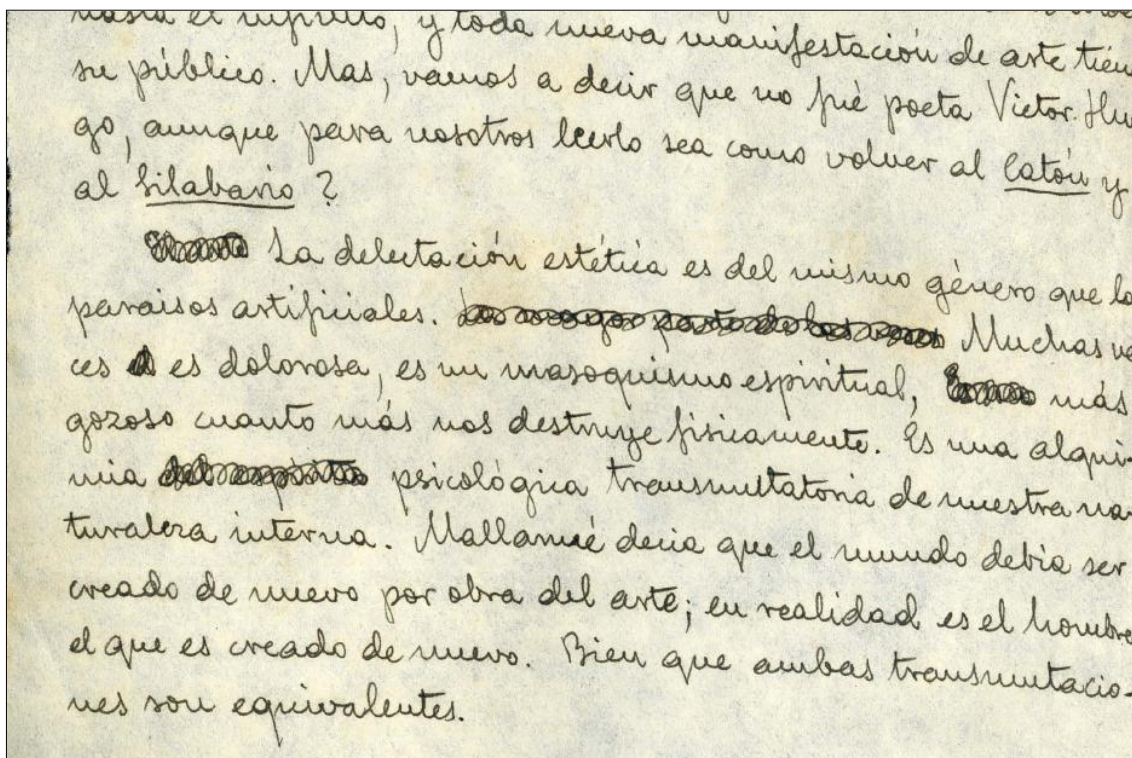 hasta el infinito, y toda nueva manifestación de arte tien
su público. Mas, vamos a decir que no fué poeta Victor Hu
go, aunque para nosotros leerlo sea como volver al Catón y
al Silabario?
La delectación estética es del mismo género que lo
paraisos artificiales. Muchas ve
ces es dolorosa, es un masoquismo espiritual, más
gozoso cuanto más nos destruye fisicamente. Es una alqui-
mia psicológica transmutatoria de nuestra na-
turaleza interna. Mallarmé decia que el mundo debia ser
creado de nuevo por obra del arte; en realidad es el hombre
el que es creado de nuevo. Bien que ambas transmutacio-
nes son equivalentes.